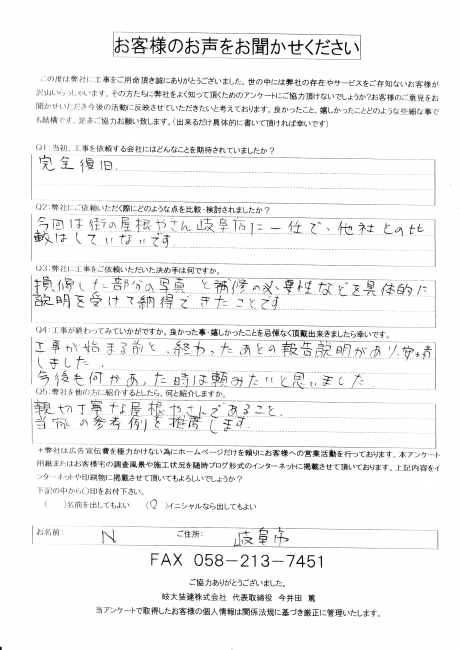 お客様のお声をお聞かせください
この度は弊社に工事をご用命頂き誠にありがとうございました。世の中には弊社の存在やサービスをご存知ないお客様が
沢山いらっしゃいます。その方たちに弊社をよく知って頂くためのアンケートにご協力頂けないでしょうか?お客様のご意見をお
聞かせいただき今後の活動に反映させていただきたいと考えております。良かったこと、嬉しかったことどのような些細な事で
も結構です、是非ご協力お願い致します。(出来るだけ具体的に書いて頂ければ幸いです)
Q1:当初、工事を依頼する会社にはどんなことを期待されていましたか?
完全復旧.
Q2:弊社にご依頼いただく際にどのような点を比較・検討されましたか?
今回は街の屋根やさん岐阜店に一位で、他社との比
較はしていないです
Q3:弊社に工事をご依頼いただいた決め手は何ですか。
損傷した部分の写真と補修の必要性などを具体的に
説明を受けて納得できたことです
Q4:工事が終わってみていかがですか。良かった事・嬉しかったことを忌憚なく頂戴出来きましたら幸いです。
工事が始まる前と、終わったあとの報告説明があり、安心
しました.
今後も何かあった時は頼みたいと思いました
Q5:弊社を他の方に紹介するとしたら、何と紹介しますか。
親切丁寧な屋根やさんであること、
当家の参考例を推薦します.
*弊社は広告宣伝費を極力かけない為にホームページだけを頼りにお客様への営業活動を行っております。本アンケート
用紙またはお客様宅の調査風景や施工状況を随時ブログ形式のインターネットに掲載させて頂いております。上記内容をイ
ンターネットや印刷物に掲載させて頂いてもよろしいでしょうか?
下記の中から○印をお付下さい。
( )名前を出してもよい (○)イニシャルなら出してもよい
お名前: N ご住所: 岐阜市
FAX 058-213-7451
ご協力ありがとうございました。
岐大装建株式会社 代表取締役 今井田 篤
当アンケートで取得したお客様の個人情報は関係法規に基づき厳正に管理いたします。